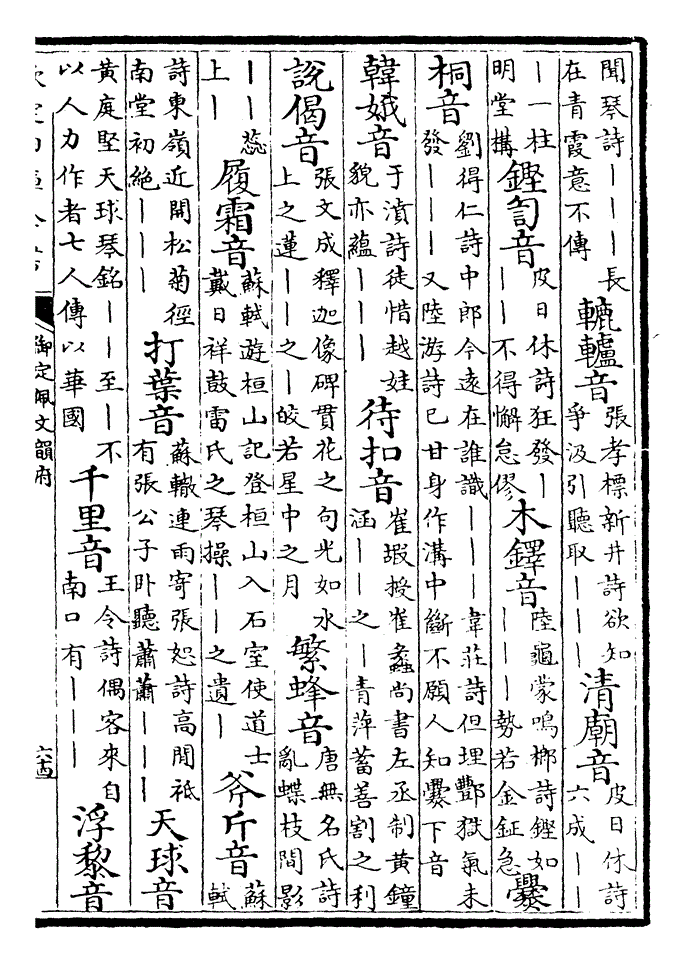 聞琴詩｜｜｜長
在青霞意不傳
轆轤音
張孝標新井詩欲知
爭汲引聽取｜｜｜
清廟音
皮日休詩
六成｜｜
｜一柱
明堂搆
鏗訇音
皮日休詩狂發｜
｜不得懈怠僇
木鐸音
陸龜蒙鳴榔詩鏗如
｜｜｜勢若金鉦急
爨
桐音
劉得仁詩中郎今遠在誰識｜｜｜韋莊詩但埋酆獄氣未
發｜｜｜又陸游詩已甘身作溝中斷不願人知爨下音
韓娥音
于濆詩徒惜越娃
貌亦蘊｜｜｜
待扣音
崔嘏授崔蠡尚書左丞制黃鐘
涵｜｜之｜青萍蓄善割之利
說偈音
張文成釋迦像碑貫花之句光如水
上之蓮｜｜之｜皎若星中之月
繁蜂音
唐無名氏詩
亂蝶枝間影
｜｜蕊
上｜
履霜音
蘇軾遊桓山記登桓山入石室使道士
戴日祥鼓雷氏之琴操｜｜之遺｜
斧斤音
蘇
軾
詩東嶺近開松菊徑
南堂初絕｜｜｜
打葉音
蘇轍連雨寄張恕詩高閒秪
有張公子臥聽蕭蕭｜｜｜
天球音
黃庭堅天球琴銘｜｜至｜不
以人力作者七人傳以華國
千里音
王令詩偶客來自
南口有｜｜｜
浮黎音
御定佩文韻府